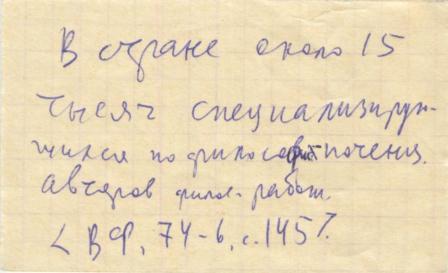 В стране около 15
тысяч специализирую-
щихся по философ
авторов филос. работ.
< ВФ, 74-6, с. 145 >.